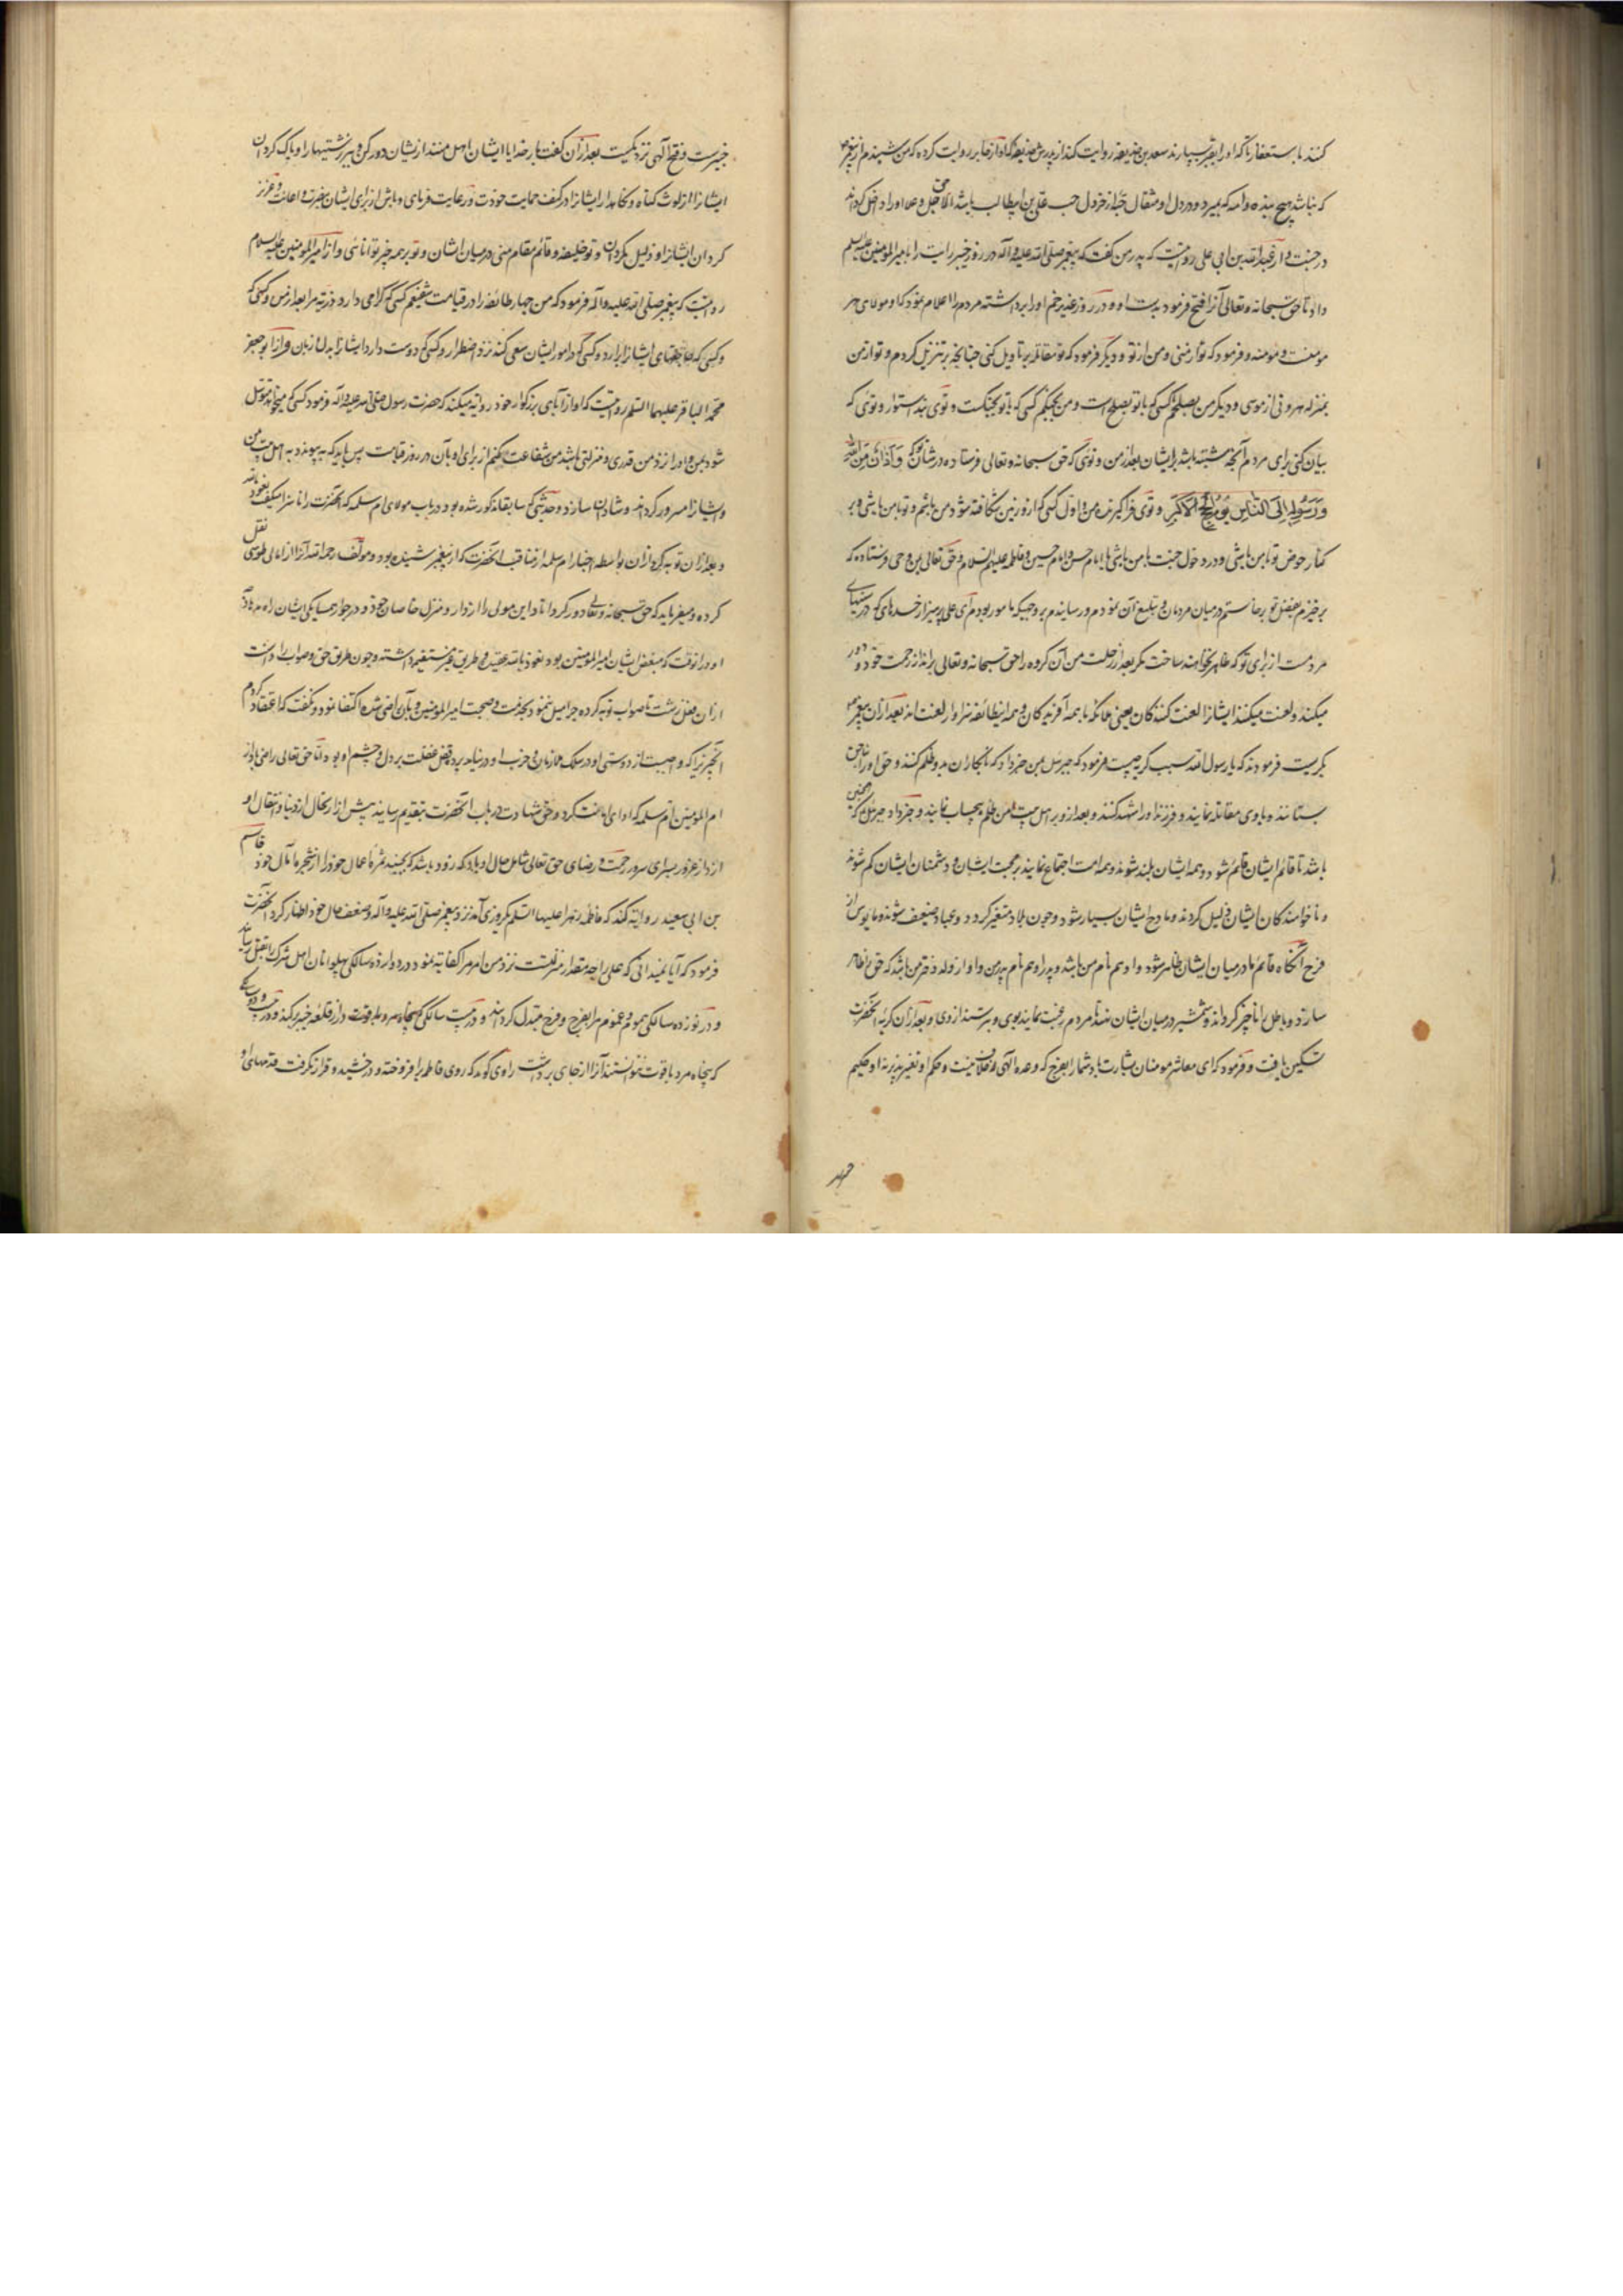 کنند باستغفار تا که او را بقبر بسپارند سعد بن حذیفه روایت کند از پدرش حذیفه که او روایت کرده که من شنیدم از پیغمبر
که نباشد هیچ بنده و امه که بمیرد و در دل او مثقال حبه از خردل حب علی بن ابیطالب باشد الا حق جل و علا او را داخل گرداند
در جنت و از عبدالله بن ابی علی رویست که پدر من گفت که پیغمبر صلی الله علیه و آله در روز خیبر رایت را بامیرالمومنین علیه السلم
داد تا حق سبحانه و تعالی آنرا فتح فرمود بدست او و در روز غدیر خم او را برداشته مردم را اعلام نمود که او مولای هر
مومنست و مومنه و فرمود که تو از منی و من از تو و دیگر فرمود که تو مقاتله بر تاویل کنی چنانچه بر تنزیل کردم و تو از من
بمنزله هرونی از موسی و دیگر من بصلحم کسی که با تو بصلح است و من بجنگم کسی که با تو بجنگست و توی بند استوار و توئی که
بیان کنی برای مردم آنچه مشتبه باشد بر ایشان بعد از من و توئی که حق سبحانه و تعالی فرستاده در شان تو که وَاَذانٌ مِنَ اللهِ
وَرَسُولِهِ اِلَی النّاسِ یَوْمَ الْحَجِّ الْاَکْبَرِ و توی فراگیرنده من اول کسی که از و زمین شکافته شود من باشم و تو با من باشی و بر
کنار حوض تو با من باشی و در دخول جنت با من باشی با امام حسن و امام حسین و فاطمه علیهم السلام و حق تعالی بمن وحی فرستاده که
برخیزم بفضل تو برخاستم در میان مردمان و تبلیغ آن نمودم و رسانیدم بر وجهی که مامور بودم ای علی بپرهیز از حسدهای که در سینهای
مردمست از برای تو که ظاهر نخواهند ساخت مگر بعد از رحلت من آن گروه را حق سبحانه و تعالی براند از رحمت خود و دور
میکند و لعنت میکند ایشانرا لعنت کنندگان یعنی ملائکه با همه آفریدگان و همه این طائفه سزاوار لعنت اند بعد از آن پیغمبر
بگریست فرمودند که یا رسول الله سبب گریه چیست فرمود که جبرئیل بمن خبر داد که نابکاران برو ظلم کنند و حق او را بناحق
بستانند و با وی مقاتله نمایند و فرزند او را شهید کنند و بعد از و بر اهل بیت من ظلم بیحساب نمایند و خبر داد جبرئیل که همچنین
باشد تا قائم ایشان قایم شود و همه ایشان بلند شوند و همه امت اجتماع نمایند بر محبت ایشان و دشمنان ایشان کم شوند
و ناخواهندگان ایشان ذلیل گردند و مادح ایشان بسیار شود و چون بلاد متغیر گردد و عباد ضعیف شوند و مایوس از
فرح آنگاه قائم ما در میان ایشان ظاهر شود و او هم نام من باشد و پدر او هم نام پدر من و او از ولد دختر من باشد که حق را ظاهر
سازد و باطل را ناچیز گرداند و شمشیر در میان ایشان نهند تا مردم رغبت نمایند بوی و بترسند از وی و بعد از آن گریه آنحضرت
تسکین یافت و فرمود که ای معاشر مومنان بشارت باد شما را بفرج که وعده الهی را خلاف نیست و حکم او تغیر نپذیرد و او حکیم
خبیرست و فتح الهی نزدیکست بعد از آن گفت بار خدایا ایشان اهل منند از ایشان دور کن و ببر زشتیها را و پاک گردان
ایشانرا از لوث گناه و نگاهدار ایشانرا در کنف حمایت خودت و رعایت فرمای و باش از برای ایشان بنصرت و اعانت و عزیز
گردان ایشانرا و ذلیل مگردان و تو خلیفه و قائم مقام منی در میان ایشان و تو بر همه چیز توانائی و از امیرالمومنین علیه السلام
رویست که پیغمبر صلی الله علیه و آله فرمود که من چهار طائفه را در قیامت شفیعم کسی که گرامی دارد ذریه مرا بعد از من و کسی که
و کسی که حاجتهای ایشانرا برارد و کسی که در امور ایشان سعی کند نزد اضطرار و کسی که دوست دارد ایشانرا بدل و زبان و از ابو جعفر
محمد الباقر علیهما السلم رویست که او از آبای بزرگوار خود روایة میکند که حضرت رسول صلی الله علیه و آله فرمود کسی که میخواهد توسل
شود بمن و او را نزد من قدری و منزلتی باشد من شفاعت کنم از برای او بآن در روز قیامت پس باید که به پیوندد به اهل بیت من
و ایشانرا مسرور گرداند و شادان سازد و حدیثی که سابقا مذکور شده بود در باب مولای ام سلمه که آنحضرت را ناسزا میگفت نعوذ بالله
و بعد از آن توبه کرد از آن بواسطه اخبار ام سلمه از مناقب آنحضرت که از پیغمبر شنیده بود و مولف رحمه الله آنرا از امالی طوسی نقل
کرده و میفرماید که حق سبحانه و تعالی دور گرداناد این مولی را از دار و منزل خاصان خود و در جوار همسایگی ایشان راه مدهاد
او در آنوقت که مبغض ایشان امیرالمومنین بود نعوذ بالله عقیده و طریق غیر مستقیم داشته و چون طریق حق و صواب را دانست
از آن فعل زشت ناصواب توبه کرده جزا میل ننمود بخدمت و صحبت امیرالمومنین و بآن راضی شده اکتفا نمود و نگفت که اعتقاد کردم
ام المومنین ام سلمه که ادای امانت کرد و حق شهادت در باب آنحضرت بتقدیم رسانید پیش از ارتحال از دنیا و انتقال او
از دار غرور بسرای سرور رحمت و رضای حق تعالی شامل حال او باد که زود باشد که بچیند ثمره اعمال خود را از شجره آمال خود قاسم
بن ابی سعید روایة کند که فاطمه زهرا علیها السلم روزی آمد نزد پیغمبر صلی الله علیه و آله و ضعف حال خود اظهار کرد آنحضرت
فرمود که آیا نمیدانی که علی را چه مقدار منزلتست نزد من امر مرا کفایة نمود در دوازده سالگی پهلوانان اهل شرک را بقتل رسانید
و در نوزده سالگی هموم و غموم مرا بفرج و فرح مبتدل گردانید و در بیست سالگی
که پنجاه مرد با قوت نتوانستند آنرا از جای برداشت راوی گوید که روی فاطمه برافروخته و درخشیده و قرار نگرفت قدمهای او